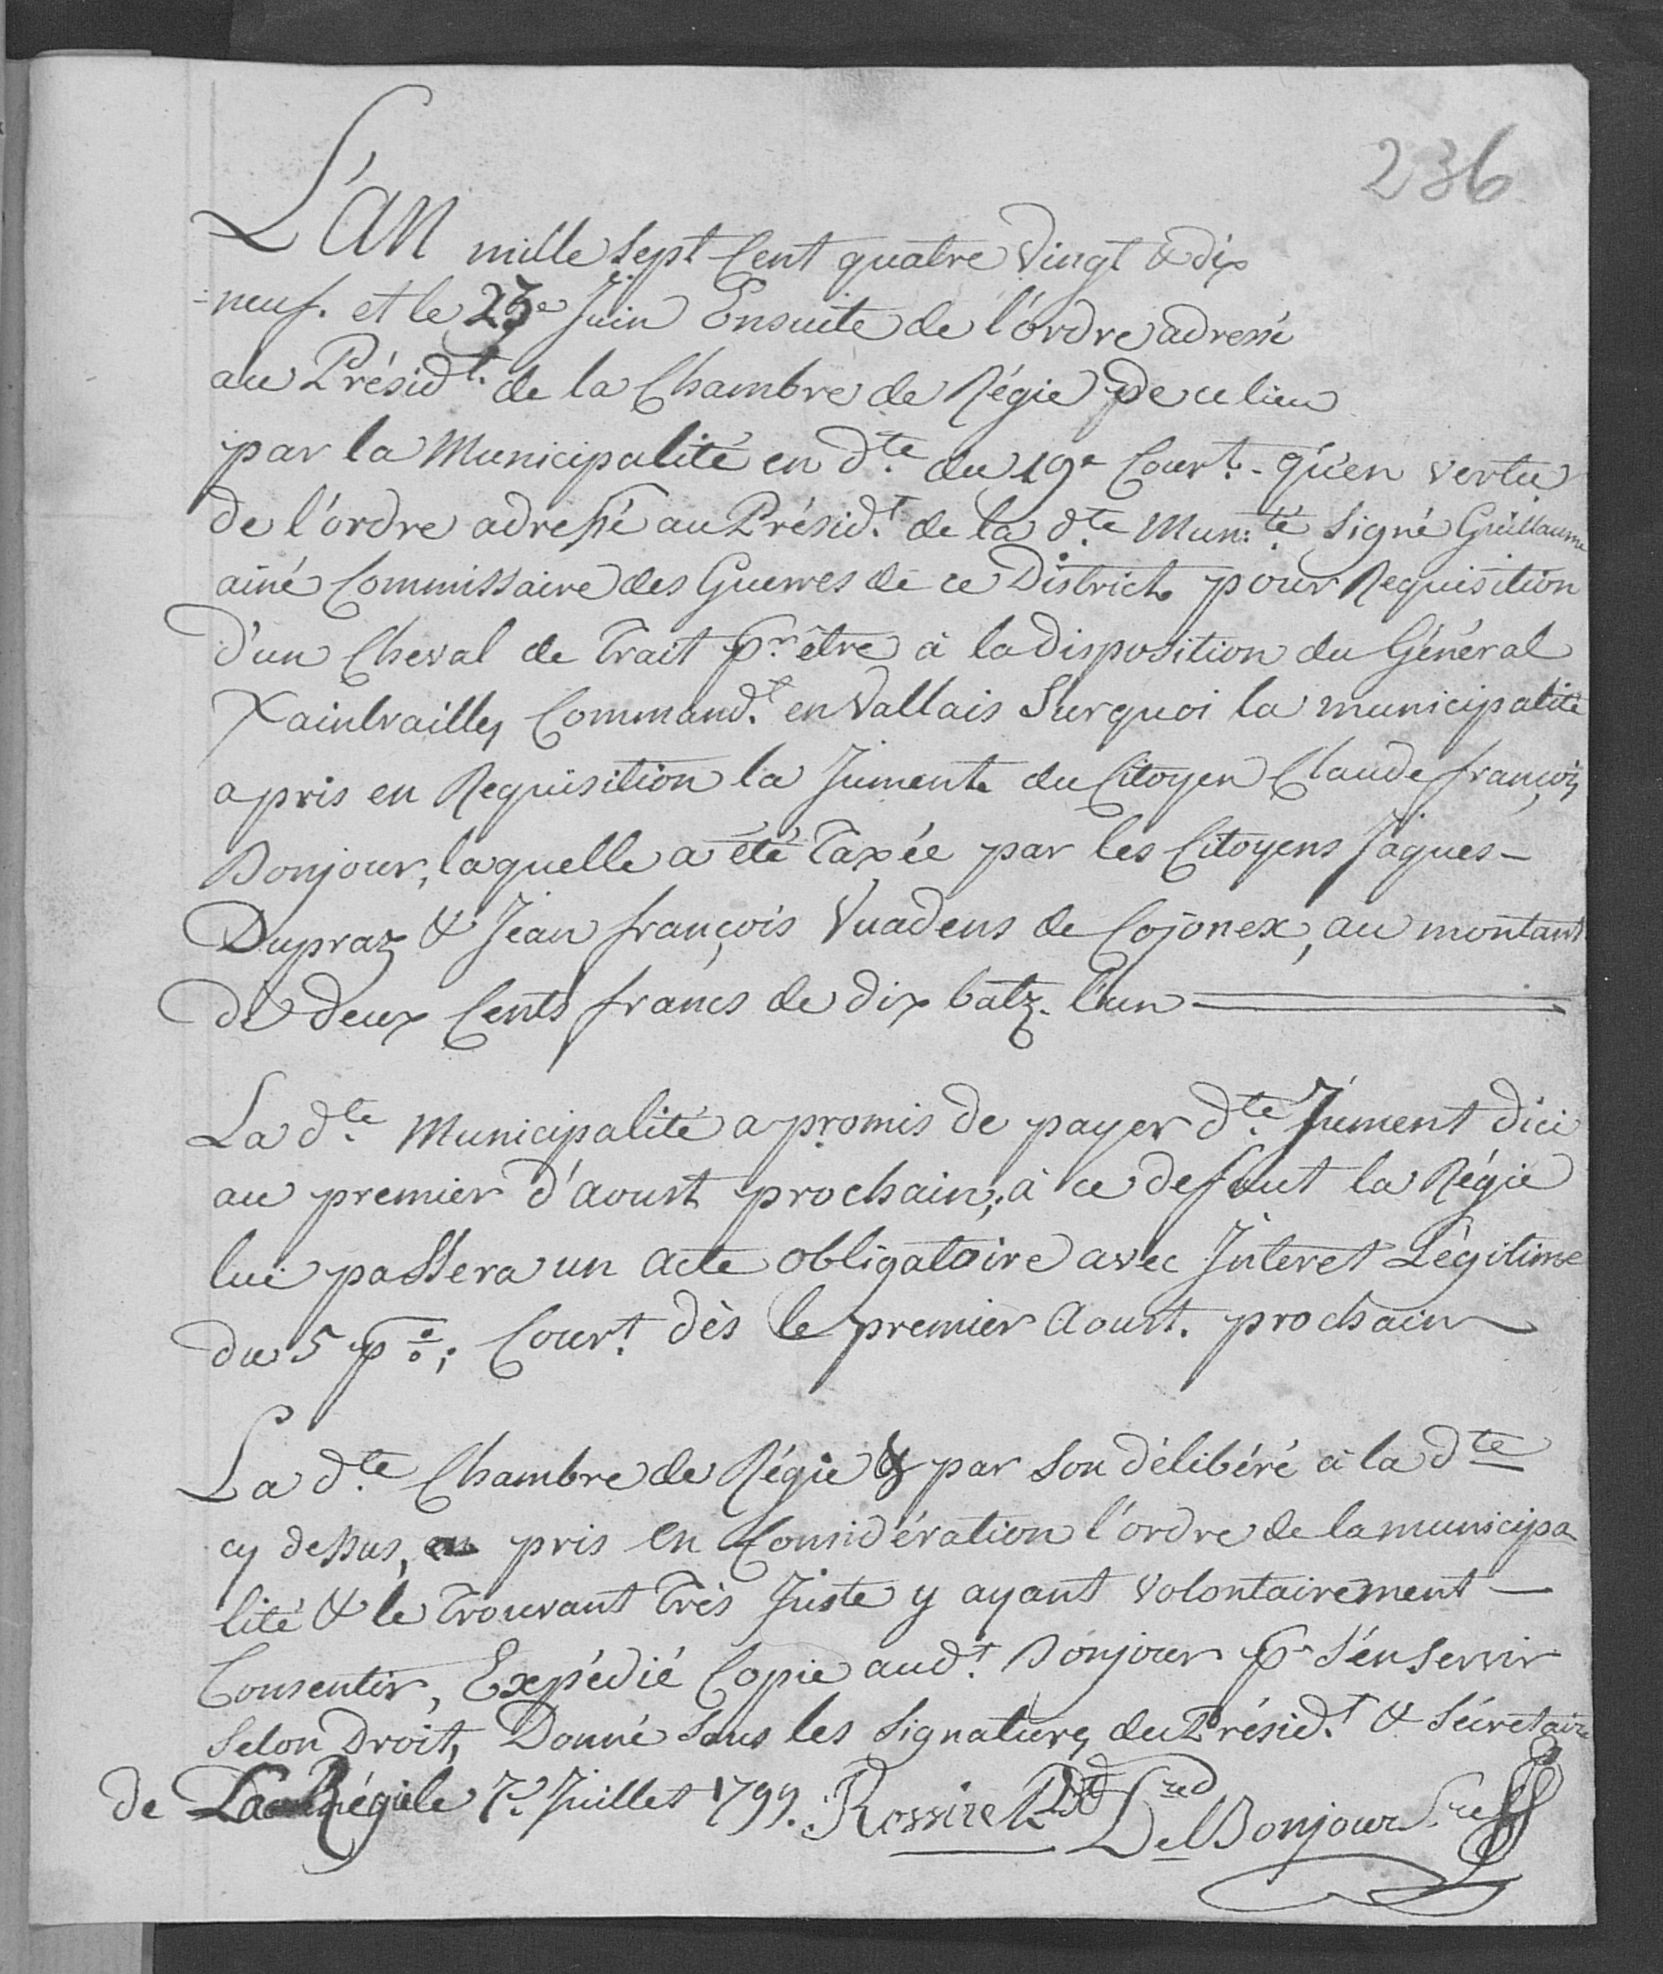 236
L'an mille Sept Cent quatre Vingt & dix
neuf. et le 23e Juin Ensuite de l'ordre adressé
au Présidt. de la Chambre de Régie de ce lieu
par la Municipalité en dte du 19e Court. qu'en vertu
de l'ordre adressé au Présidt. de la dte Mun:té Signé Guillaume
ainé Commissaire des Guerres de ce District pour Requisition
d'un Cheval de Trait pr être à la disposition du Général
Xaintrailles Commandt. en Vallais Surquoi la municipalité
a pris en Requisition la Jument du Citoyen Claude françois
Bonjour, laquelle a été Taxée par les Citoyens Jâques
Dupraz & Jean françois Vuadens de Cojonex, au montant
de deux Cents francs de dix batz. l'un
La dte Municipalité a promis de payer dte Jument dici
au premier d'aoust prochain, à ce defaut la Régie
lui passera un acte obligatoire avec Interet Légitime
du 5 p%; Court. dès le premier Aoust. prochain
La dte Chambre de Régie & par Son délibéré à la dte
cy dessus, pris en Considération l'ordre de la municipa
lité & le Trouvant Très Juste y ayant volontairement
Consentir, Expédié Copie audt. Bonjour pr S'en Servir
Selon Droit, Donné Sous les Signatures du Présidt. & Sécretaire
de La Régie le 7e. Juillet 1799. Rossire Pdt Del Bonjour Sre